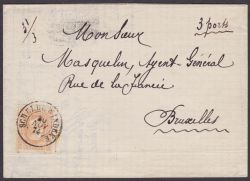 3 ports
31/3
Monsieur
Masquelin, Agent-Général
Rue de la
Bruxelles